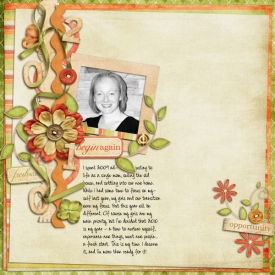 2
0
begin again
I spent 2009 adjusting to
life as a single mom, selling the old
house, and settling into our new home.
While I had some time to focus on my-
self last year, my girls and our transition
were my focus, but this year will be
different. Of course my girls are my
main priority, but I've decided that 2010
is my year - a time to nurture myself,
experience new things, meet new people.
A fresh start. This is my time. I deserve
it, and I'm more than ready for it!
opportunity